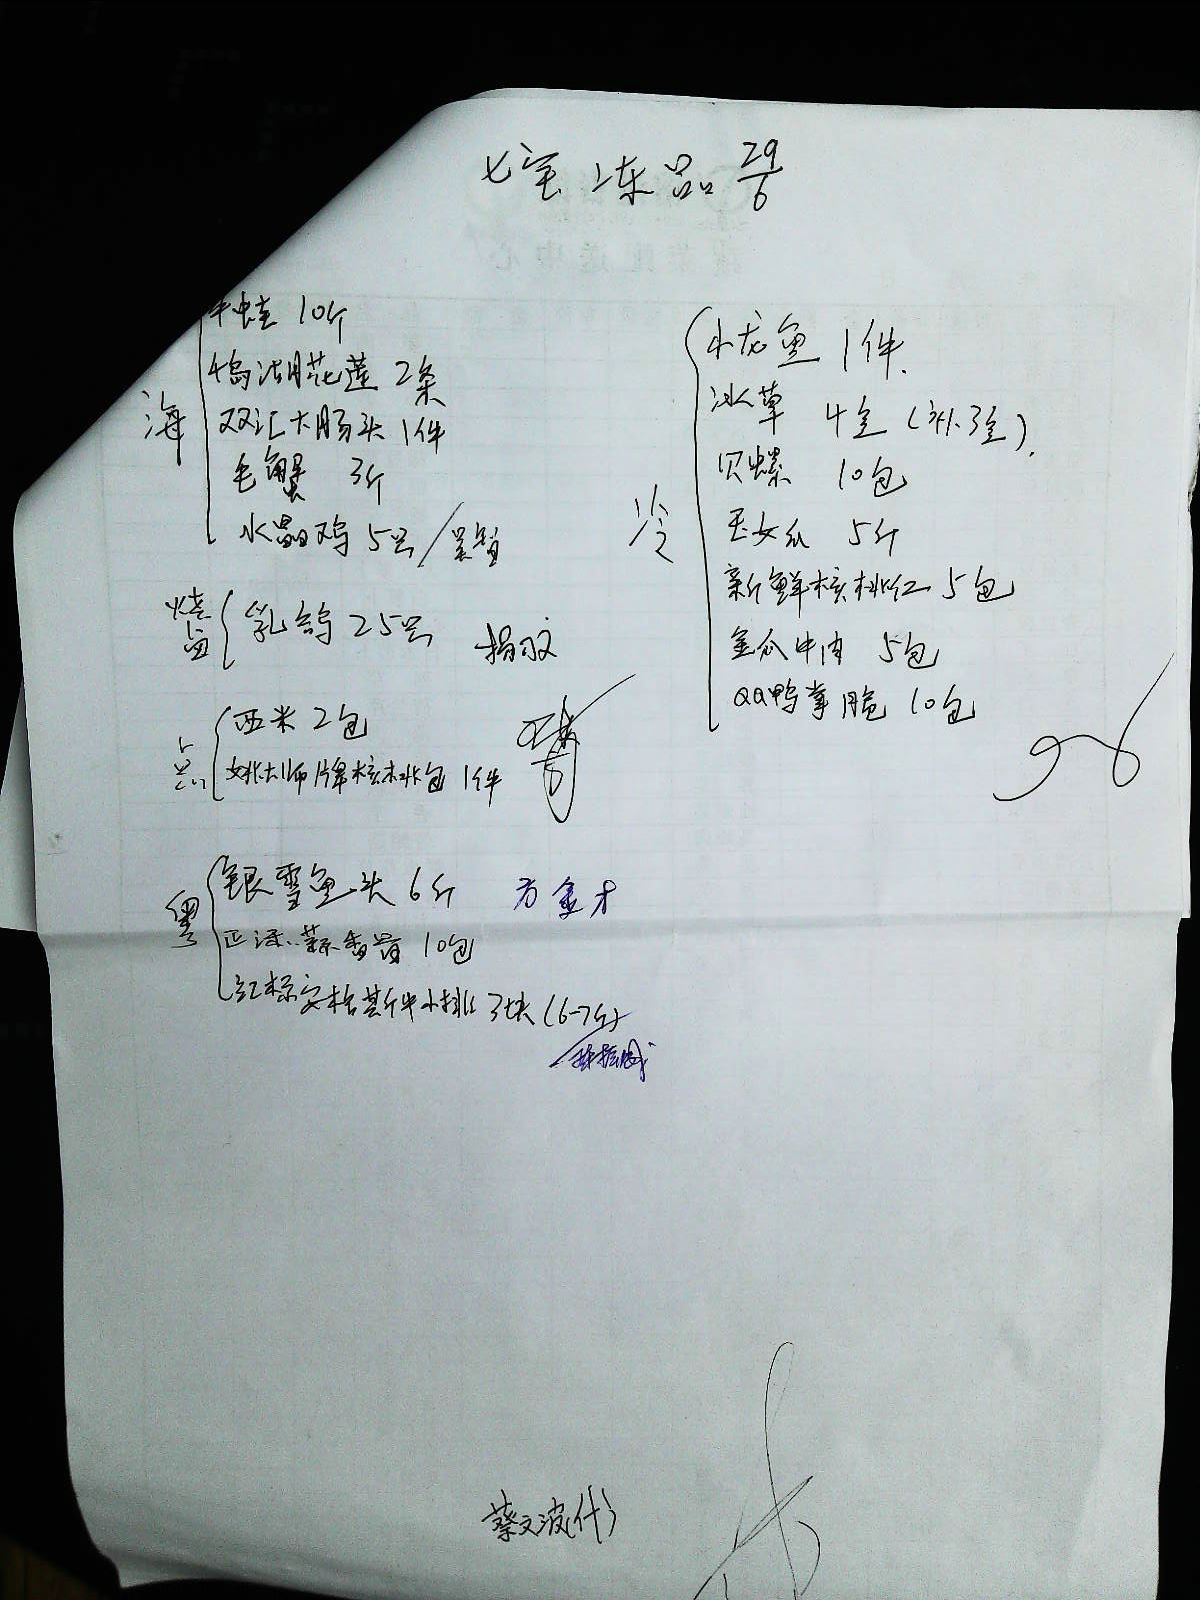 七宝冻品 29/6
海
牛蛙 10斤
湖花莲 2条
双汇大肠头 1件
毛蟹 3斤
水晶鸡 5只/
烧卤
乳鸽 25只
点
西米 2包
姚大师牌核桃包 1件
粤
银雪鱼头 6斤 方金才
蒜香 10包
红标安格斯牛小排 3块(6-7斤)
冷
小龙鱼 1件.
冰草 4盒(补3盒).
贝螺 10包
玉女瓜 5斤
新鲜核桃仁 5包
金瓜牛肉 5包
QQ鸭掌脆 10包
蔡文波(代)